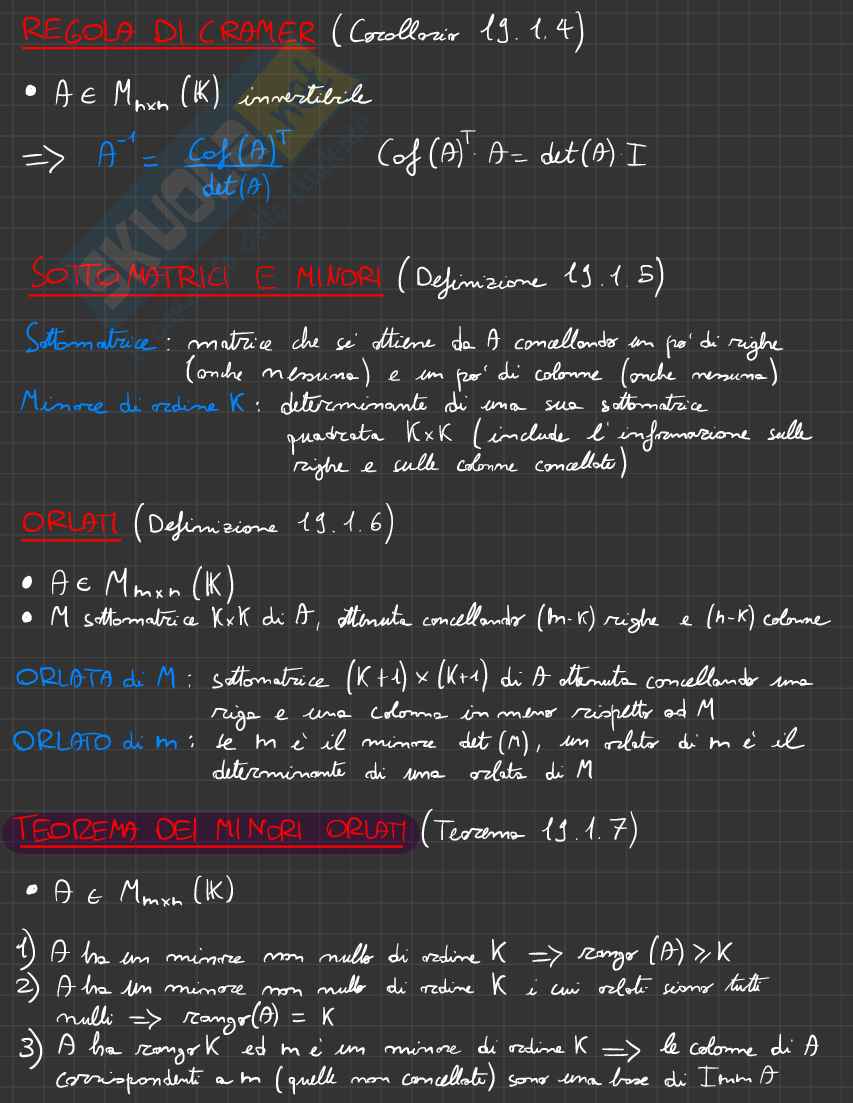 REGOLA DI CRAMER (Corollario 19.1.4)
• A ∈ Mₙₓₙ (𝕂) invertibile
=> A⁻¹ = Cof(A)ᵀ / det(A)    Cof(A)ᵀ · A = det(A) · I
SOTTOMATRICI E MINORI (Definizione 19.1.5)
Sottomatrice : matrice che si ottiene da A cancellando un po' di righe
(anche nessuna) e un po' di colonne (anche nessuna)
Minore di ordine K : determinante di una sua sottomatrice
quadrata K×K (include l'informazione sulle
righe e sulle colonne cancellate)
ORLATI (Definizione 19.1.6)
• A ∈ Mₘₓₙ (𝕂)
• M sottomatrice K×K di A, ottenuta cancellando (m-K) righe e (n-K) colonne
ORLATA di M : sottomatrice (K+1) × (K+1) di A ottenuta cancellando una
riga e una colonna in meno rispetto ad M
ORLATO di m : se m è il minore det (M), un orlato di m è il
determinante di una orlata di M
TEOREMA DEI MINORI ORLATI (Teorema 19.1.7)
• A ∈ Mₘₓₙ (𝕂)
1) A ha un minore non nullo di ordine K => rango (A) ≥ K
2) A ha un minore non nullo di ordine K i cui orlati siano tutti
nulli => rango(A) = K
3) A ha rango K ed m è un minore di ordine K => le colonne di A
corrispondenti a m (quelle non cancellate) sono una base di Imm A